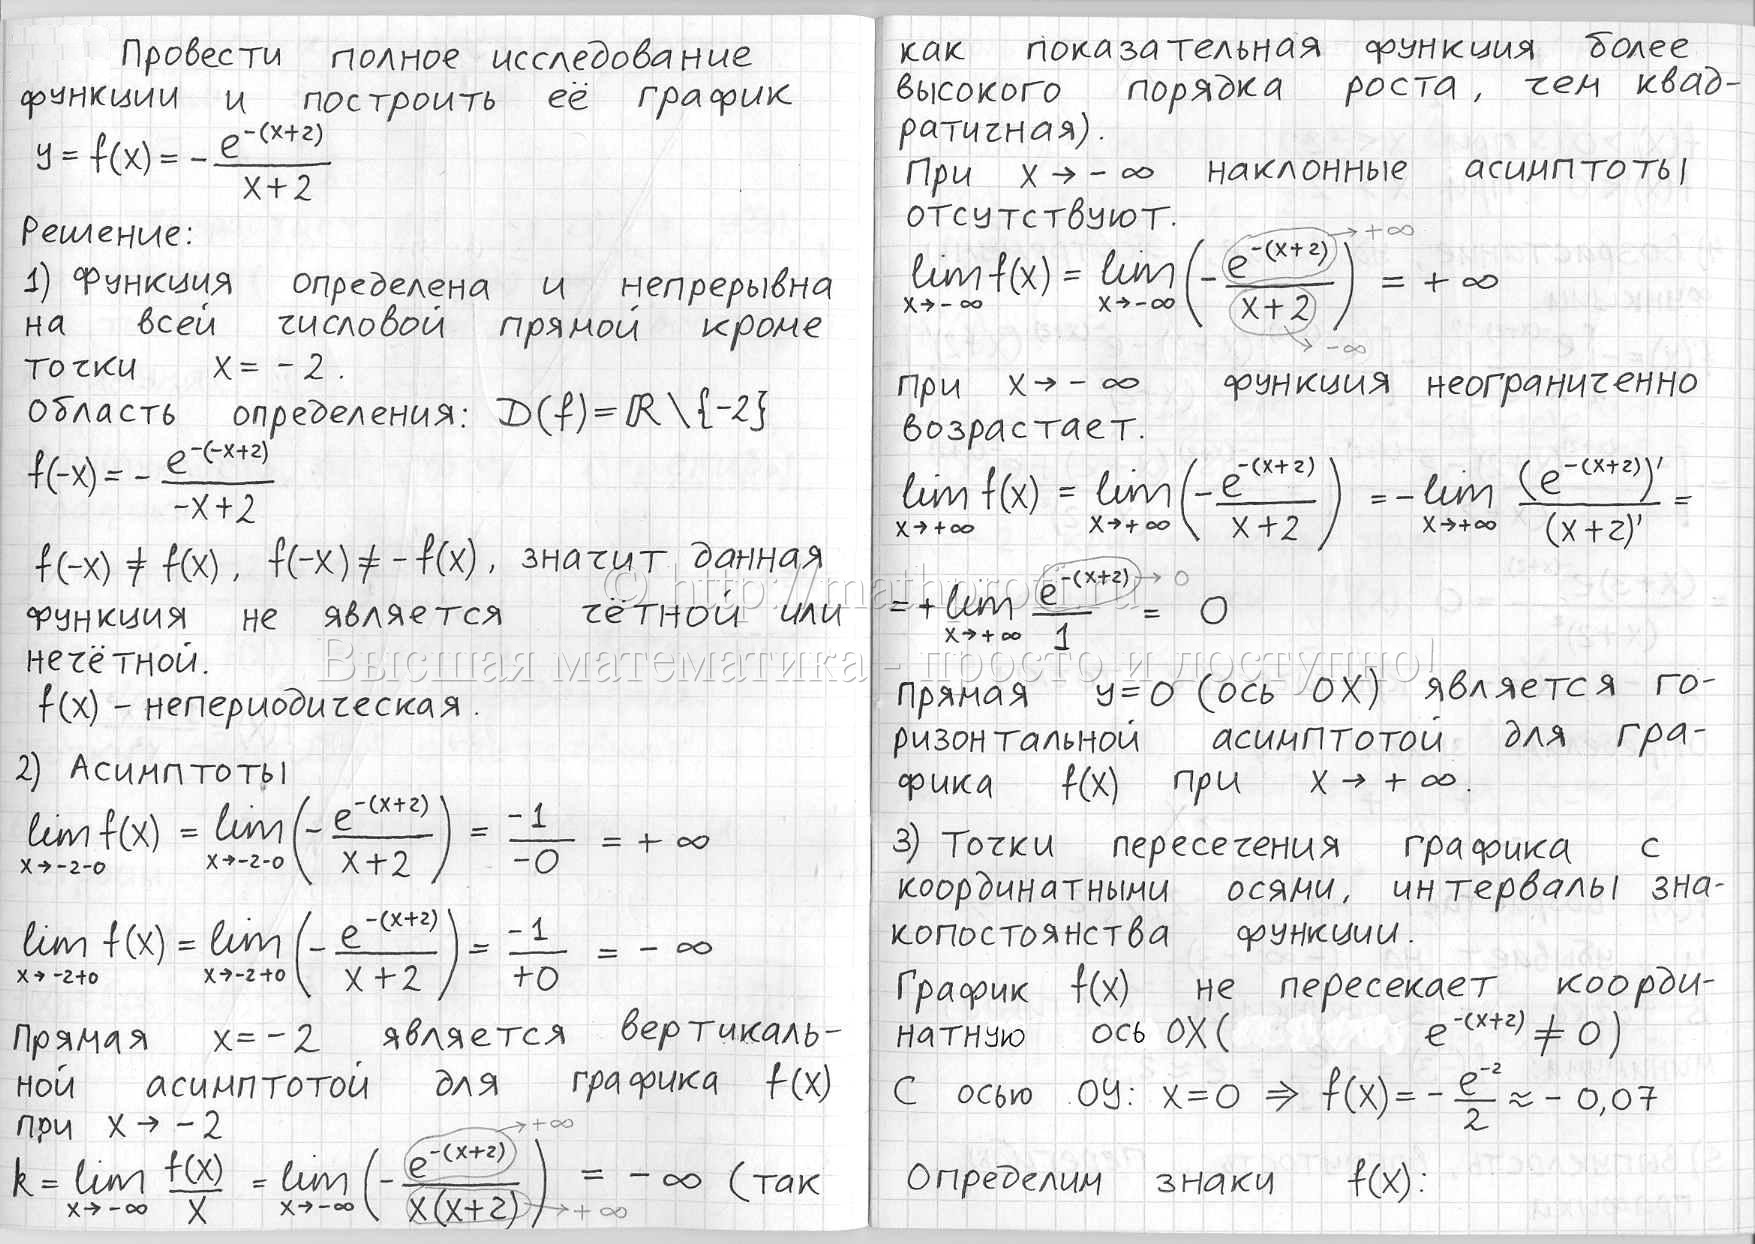 Провести полное исследование
функции и построить её график
y = f(x) = - e^{-(x+2)} / (x+2)
Решение:
1) Функция определена и непрерывна
на всей числовой прямой кроме
точки x = - 2 .
Область определения: D(f) = ℝ \ {-2}
f(-x) = - e^{-(-x+2)} / (-x+2)
f(-x) ≠ f(x), f(-x) ≠ - f(x), значит данная
функция не является чётной или
нечётной.
f(x) – непериодическая.
2) Асимптоты
lim_{x→-2-0} f(x) = lim_{x→-2-0} (- e^{-(x+2)} / (x+2)) = -1 / -0 = + ∞
lim_{x→-2+0} f(x) = lim_{x→-2+0} (- e^{-(x+2)} / (x+2)) = -1 / +0 = - ∞
Прямая x = - 2 является вертикаль-
ной асимптотой для графика f(x)
при x → - 2
k = lim_{x→-∞} f(x)/x = lim_{x→-∞} (- e^{-(x+2)} →+∞ / x(x+2) →+∞) = - ∞ (так
как показательная функция более
высокого порядка роста, чем квад-
ратичная).
При x → - ∞ наклонные асимптоты
отсутствуют.
lim_{x→-∞} f(x) = lim_{x→-∞} (- e^{-(x+2)} →+∞ / (x+2) →-∞) = + ∞
при x → - ∞ функция неограниченно
возрастает.
lim_{x→+∞} f(x) = lim_{x→+∞} (- e^{-(x+2)} / (x+2)) = - lim_{x→+∞} (e^{-(x+2)})' / (x+2)' =
= + lim_{x→+∞} e^{-(x+2)} →0 / 1 = 0
Прямая y = 0 (ось OX) является го-
ризонтальной асимптотой для гра-
фика f(x) при x → + ∞.
3) Точки пересечения графика с
координатными осями, интервалы зна-
копостоянства функции.
График f(x) не пересекает коорди-
натную ось OX ( e^{-(x+2)} ≠ 0 )
С осью OY: x = 0 ⇒ f(x) = - e^{-2} / 2 ≈ - 0,07
Определим знаки f(x):
© http://mathprofi.ru
Высшая математика - просто и доступно!